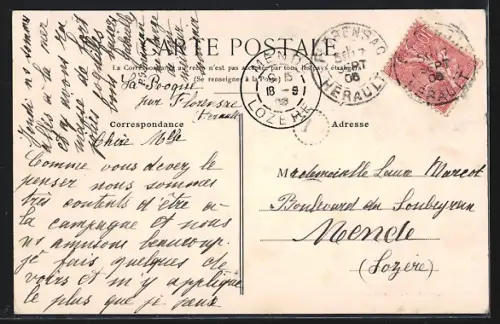 CARTE POSTALE
La Correspondance au recto n'est pas acceptée par tous les pays étrangers
(Se renseigner à la Poste)
Correspondance
Adresse
par Florensac
Hérault
Chère Mlle
Comme vous devez le
penser nous sommes
très contents d'être à
la campagne et nous
ns amusons beaucoup.
je fais quelques de
voirs et m'y applique
le plus que je peux
Jeudi ns sommes
allés à la mer
et y avons
Mademoiselle Laure Marcot
Boulevard du Soubeyran
Mende
(Lozère)
FLORENSAC
HÉRAULT
18 -9
LOZÈRE